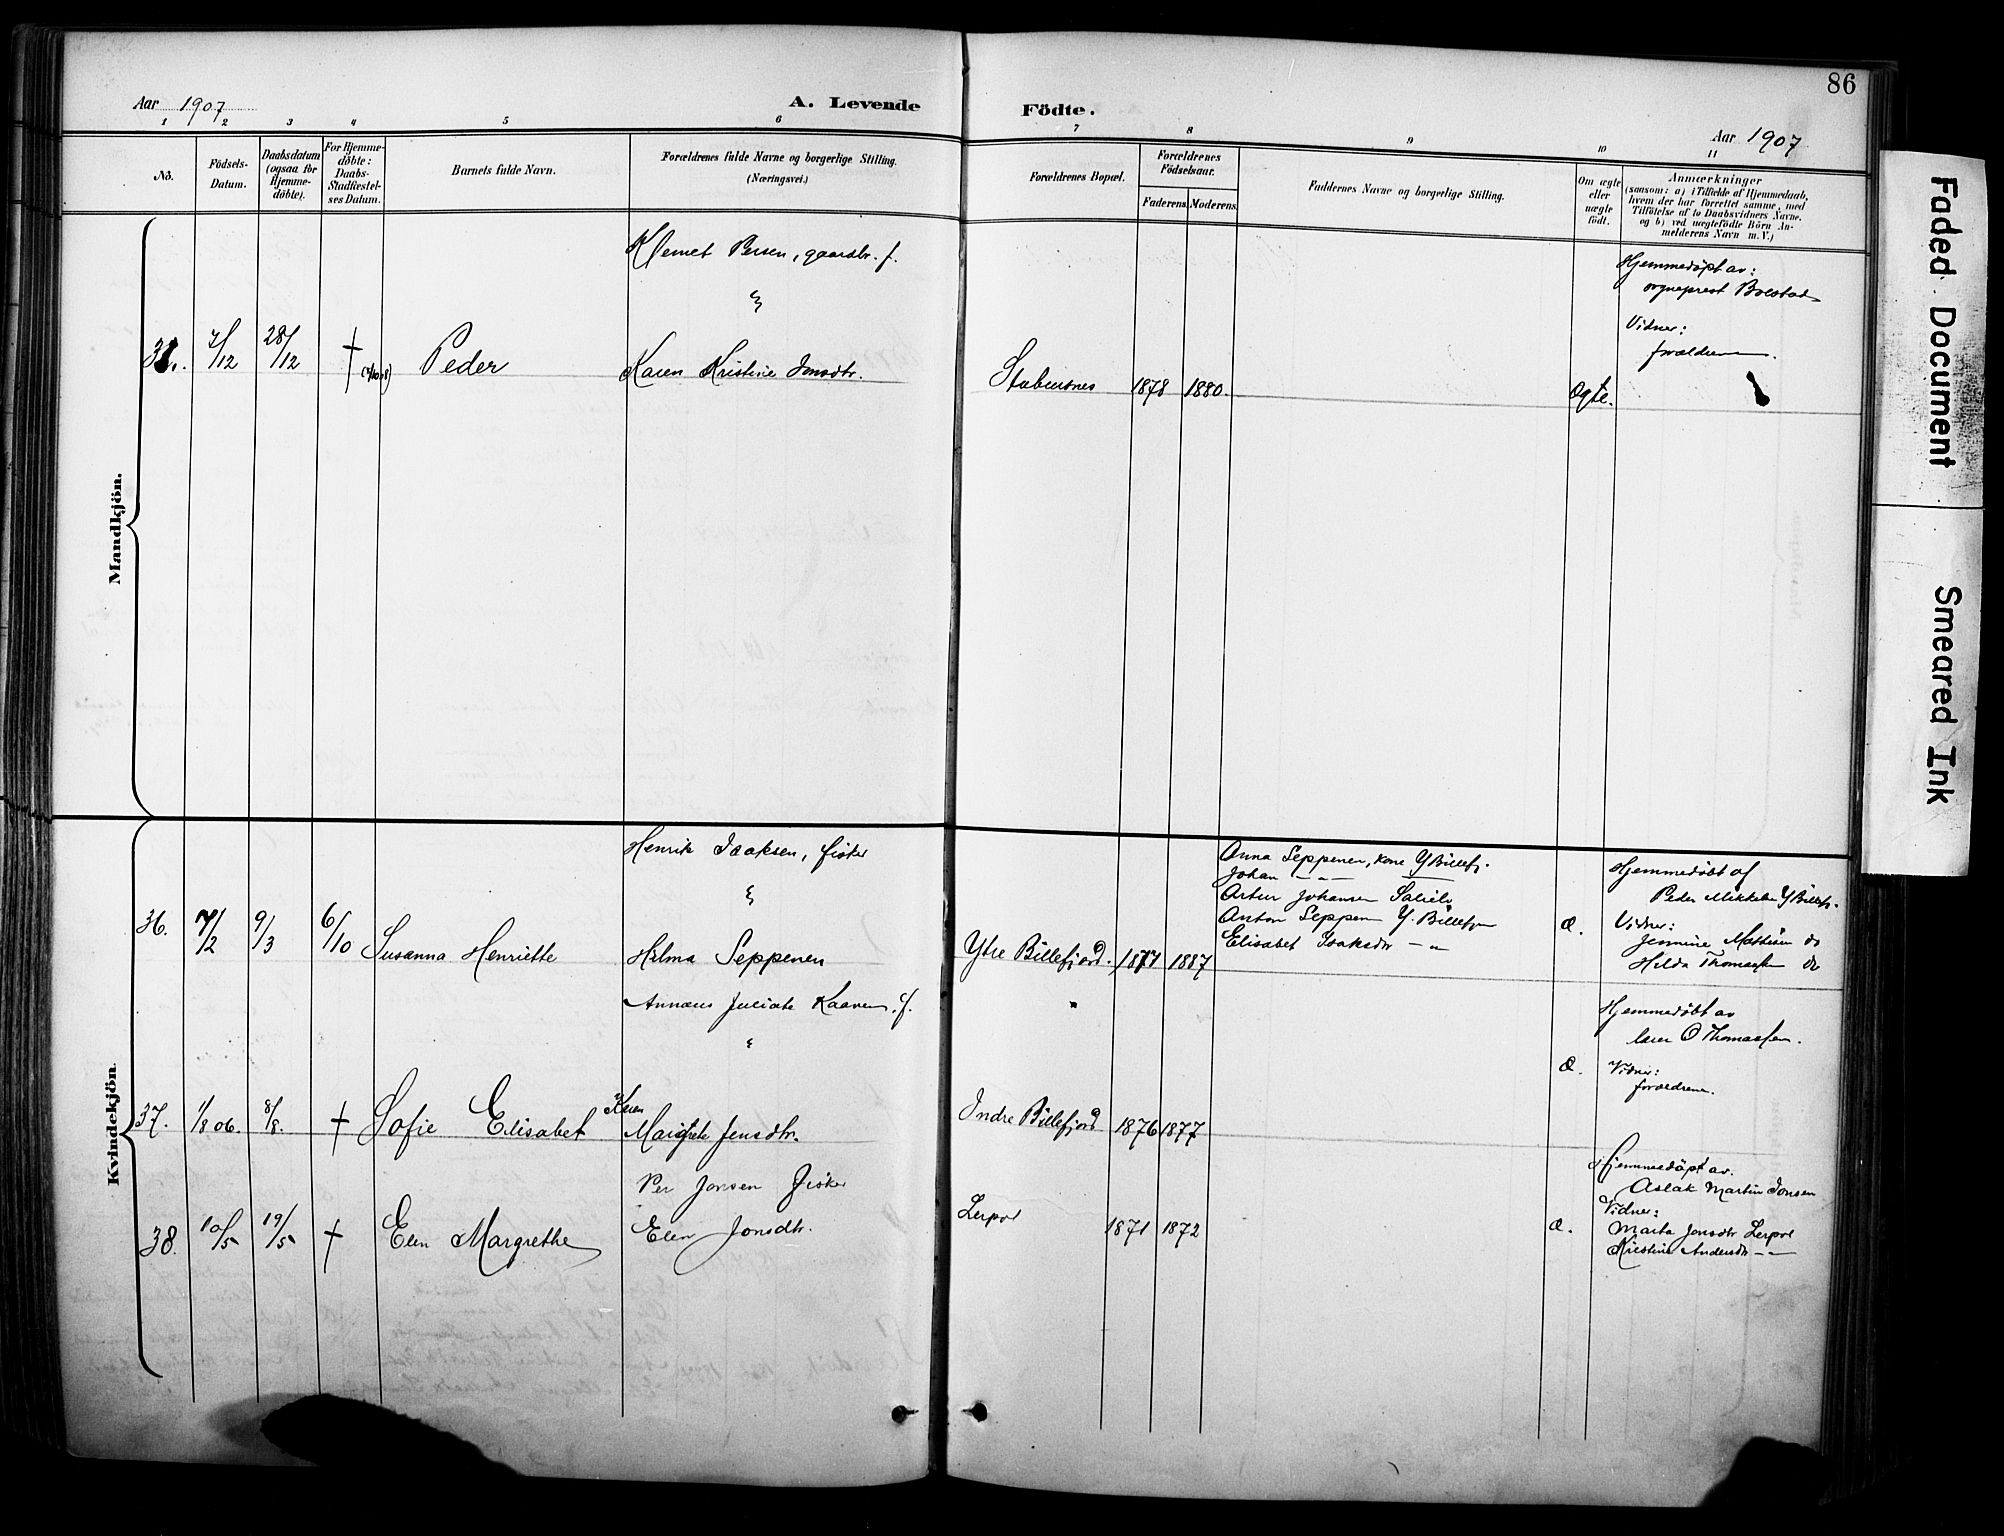 86
Aar 1907
A. Levende
Födte.
Aar 1907
1 2 3 4 5 6 7 8 9 10 11
No.
Födsels-
Datum.
Daabsdatum
(ogsaa for
Hjemme-
döbte).
For Hjemme-
döbte:
Daabs-
Stadfæstel-
ses Datum.
Barnets fulde Navn.
Forældrenes fulde Navne og borgerlige Stilling.
(Næringsvei.)
Forældrenes Bopæl.
Forældrenes
Födselsaar.
Faderens.
Moderens.
Faddernes Navne og borgerlige Stilling.
Om ægte
eller
uægte
födt.
Anmærkninger
(saasom: a) i Tilfælde af Hjemmedaab,
hvem der har forrettet samme, med
Tilföielse af to Daabsvidners Navne,
og b) ved uægtefödte Börn An-
melderens Navn m. V.)
Mandkjön.
Klemet Persen, gaardbr. f.
Hjemmedöpt av:
sogneprest Bolstad
Vidner:
forældrene.
7/12 28/12 † Peder
Karen Kristine Jonsdtr.
Stabursnes 1878 1880. Ægte.
Kvindekjön.
Henrik Isaksen, fisker
&
36. 7/2 9/3 6/10 Susanna Henriette
Hilma Seppenen
Ytre Billefjord. 1887
Anna Seppenen, kone Y Billefj.
Johan — " —
Artur Johansen
Anton Seppen Y. Billefjor
Elisabet Isaksdtr — "
Æ.
Hjemmedöbt af
Peder Mikkelsen Y Billefj.
Vidner:
Mathisen do
Hilda Thomassen do
Kaaven, f.
"
37. 1/8 06. 8/8. † Sofie Elisabet
Karen
Margrete Jensdtr.
Indre Billefjord 1876 1877
Æ.
Hjemmedöbt av
lærer O Thomassen.
Vidner:
forældrene.
Per Jonsen Fisker
38. 10/5 19/5 † Elen Margrethe
Elen Jonsdtr.
Lerpol 1871 1872
Æ.
Hjemmedöpt av.
Aslak Martin Jonsen
Vidner:
Marta Jonsdtr Lerpol
Kirstine Andersdtr — " —
Faded Document
Smeared Ink